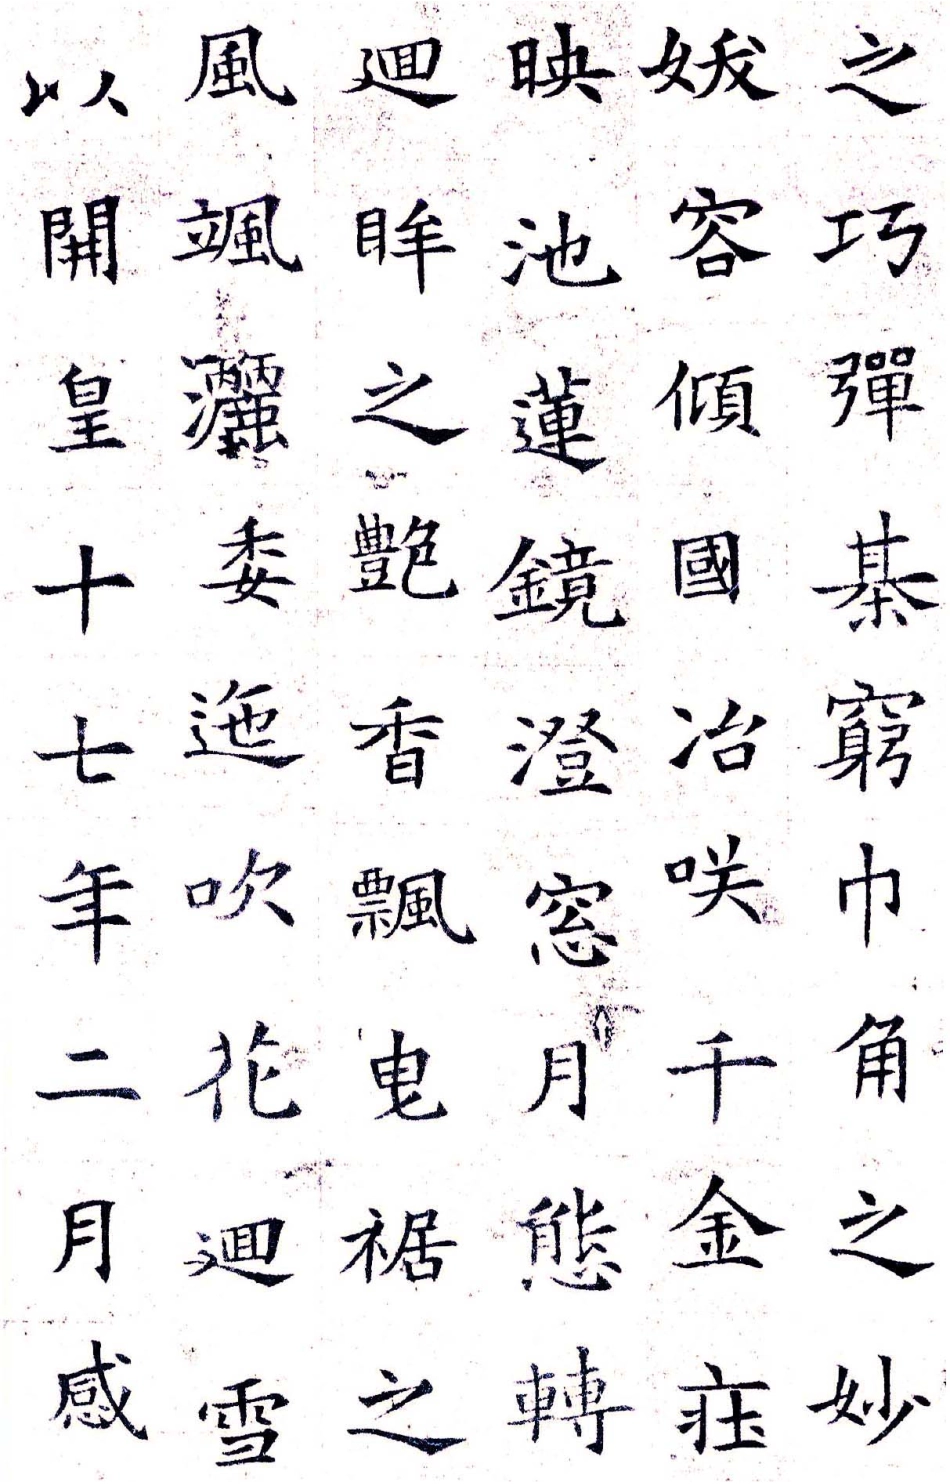 之巧彈棊窮巾角之妙
妭容傾國冶咲千金莊
映池蓮鏡澄窓月態轉
迴眸之艷香飄曳裾之
風颯灑委迤吹花迴雪
以開皇十七年二月感